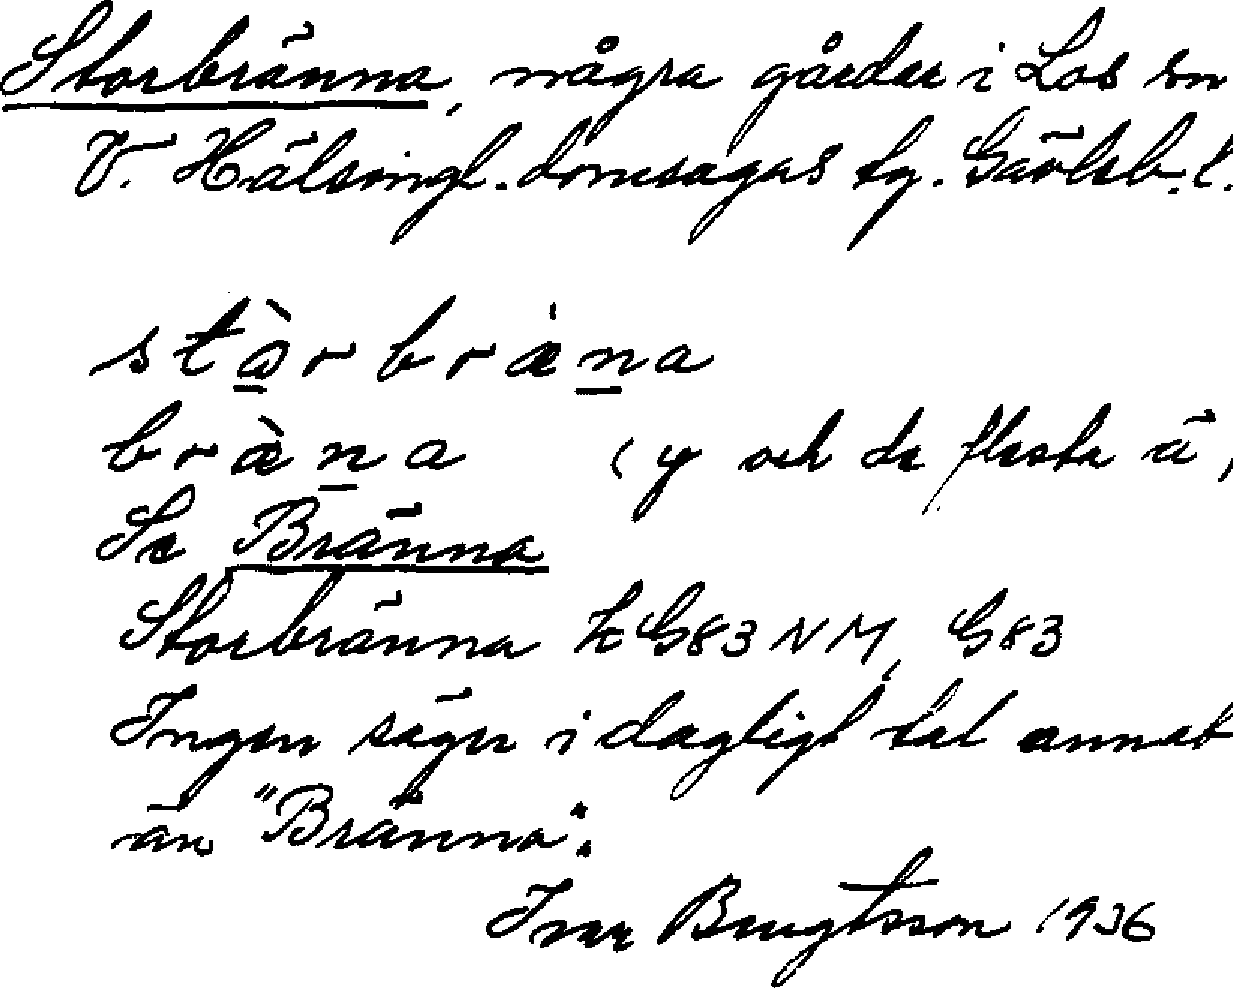 Storbränna, några gårdar i Los sn
V. Hälsingl. domsagas tg. Gävleb. l.
stàrbræna
bræ̀na (y och de flesta ä,
Se Bränna
Storbränna LG83 NM, G83
Ingen säger i dagligt tal annat
än "Bränna".
Ivar Bengtsson 1936